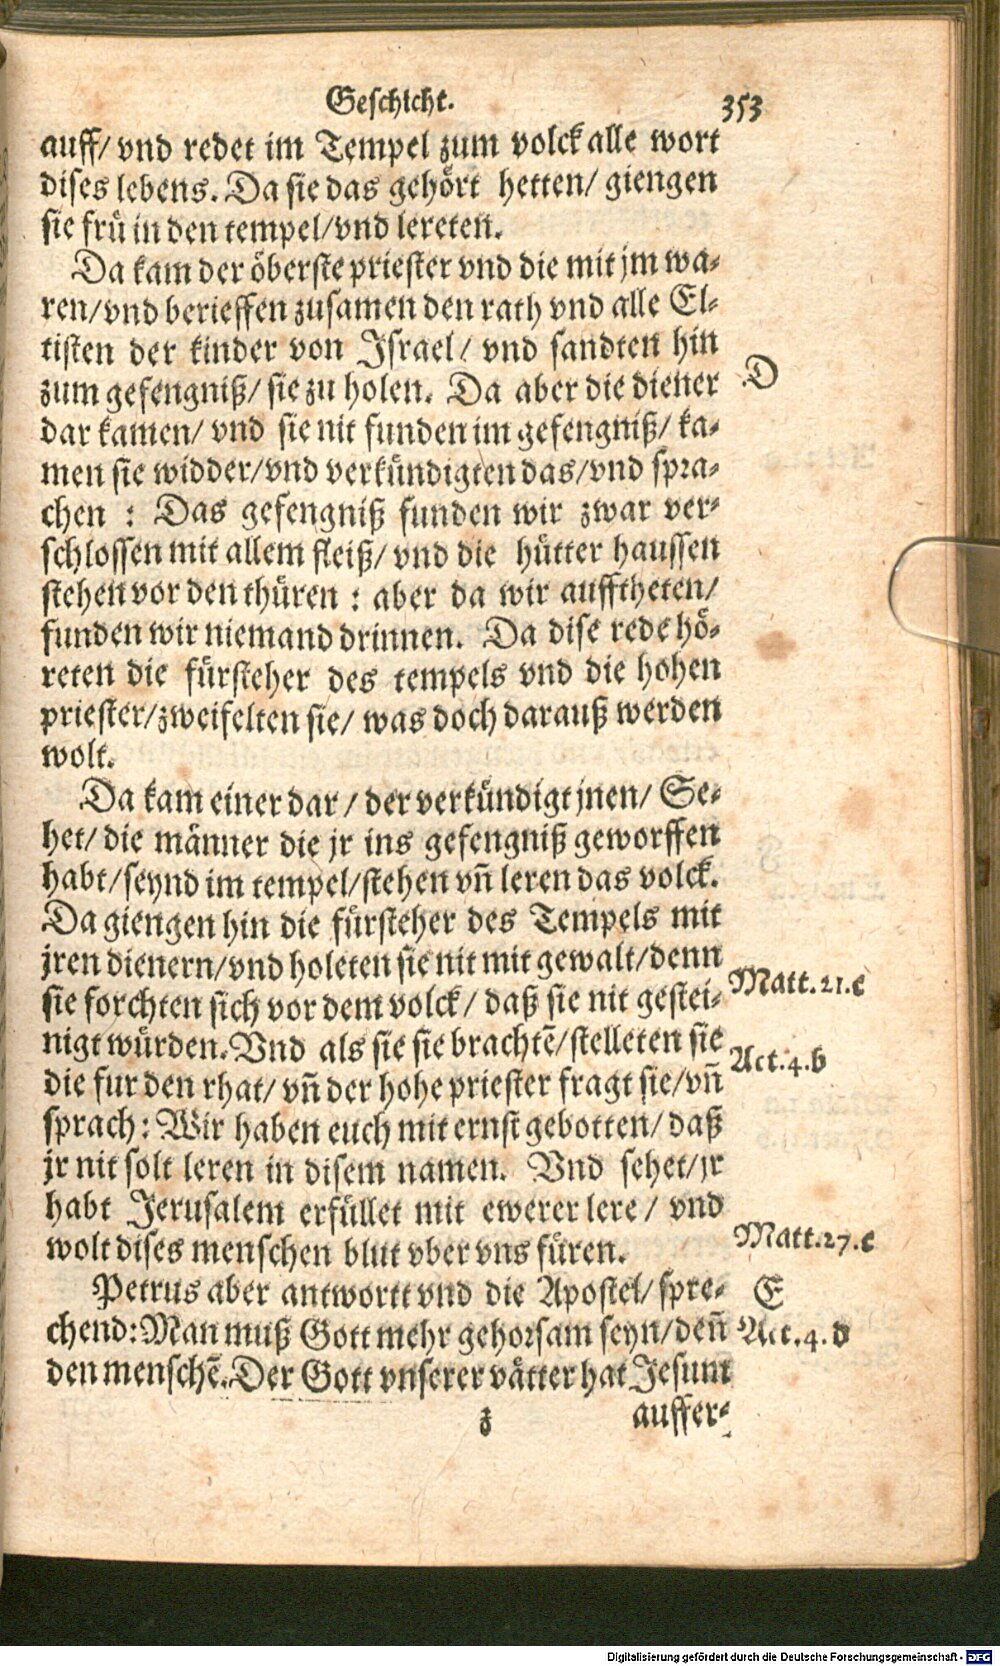 Geschicht. 353
auff/ vnd redet im Tempel zum volck alle wort
dises lebens. Da sie das gehört hetten/ giengen
sie frü in den tempel/ vnd lereten.
Da kam der öberste priester vnd die mit jm wa-
ren/ vnd berieffen zusamen den rath vnd alle El-
tisten der kinder von Israel/ vnd sandten hin
zum gefengniß/ sie zu holen. Da aber die diener
D
dar kamen/ vnd sie nit funden im gefengniß/ ka-
men sie widder/ vnd verkündigten das/ vnd spra-
chen : Das gefengniß funden wir zwar ver-
schlossen mit allem fleiß/ vnd die hütter haussen
stehen vor den thüren : aber da wir aufftheten/
funden wir niemand drinnen. Da dise rede hö-
reten die fürsteher des tempels vnd die hohen
priester/ zweifelten sie/ was doch darauß werden
wolt.
Da kam einer dar / der verkündigt jnen/ Se-
het/ die männer die jr ins gefengniß geworffen
habt/ seynd im tempel/ stehen vñ leren das volck.
Da giengen hin die fürsteher des Tempels mit
jren dienern/ vnd holeten sie nit mit gewalt/ denn
Matt.21.c
sie forchten sich vor dem volck/ daß sie nit gestei-
nigt würden. Vnd als sie sie brachtē/ stelleten sie
Act.4.b
die fur den rhat/ vñ der hohe priester fragt sie/ vñ
sprach: Wir haben euch mit ernst gebotten/ daß
jr nit solt leren in disem namen. Vnd sehet/ jr
habt Jerusalem erfüllet mit ewerer lere/ vnd
wolt dises menschen blut vber vns füren.
Matt.27.c
Petrus aber antwortt vnd die Apostel/ spre-
E
chend: Man muß Gott mehr gehorsam seyn/ deñ
Act.4.d
den menschē. Der Gott vnserer vätter hat Jesum
z auffer-
Digitalisierung gefördert durch die Deutsche Forschungsgemeinschaft - DFG